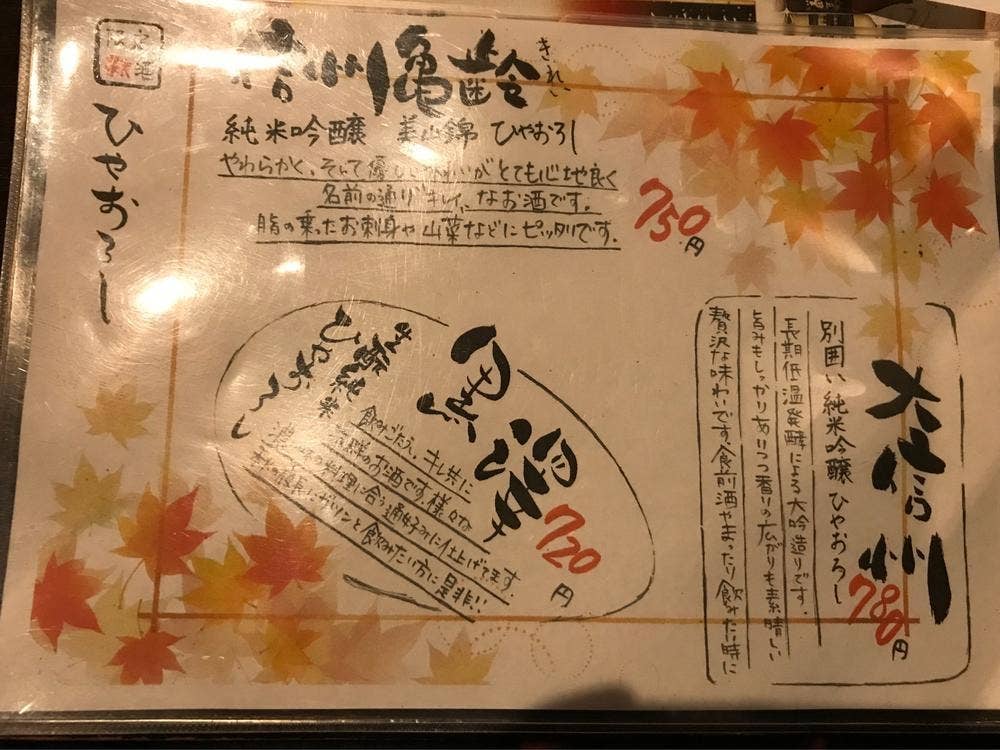 ひやおろし
信州亀齢
きれい
純米吟醸 美山錦 ひやおろし
やわらかく、そして優しい味わいがとても心地良く
名前の通り"キレイ"なお酒です。
脂の乗ったお刺身や山菜などにピッタリです。
750円
大信州
別囲い純米吟醸 ひやおろし
長期低温発酵による大吟造りです。
旨みもしっかりありつつ香りの広がりも素晴しい
贅沢な味わいです。食前酒やまったり飲みた時に
780円
黒澤
生酛純米
ひやおろし
飲みごたえ、キレ共に
のお酒です。様々な
の料理に合う通好みに仕上げてます。
ガツンと飲みたい方に是非い
720円